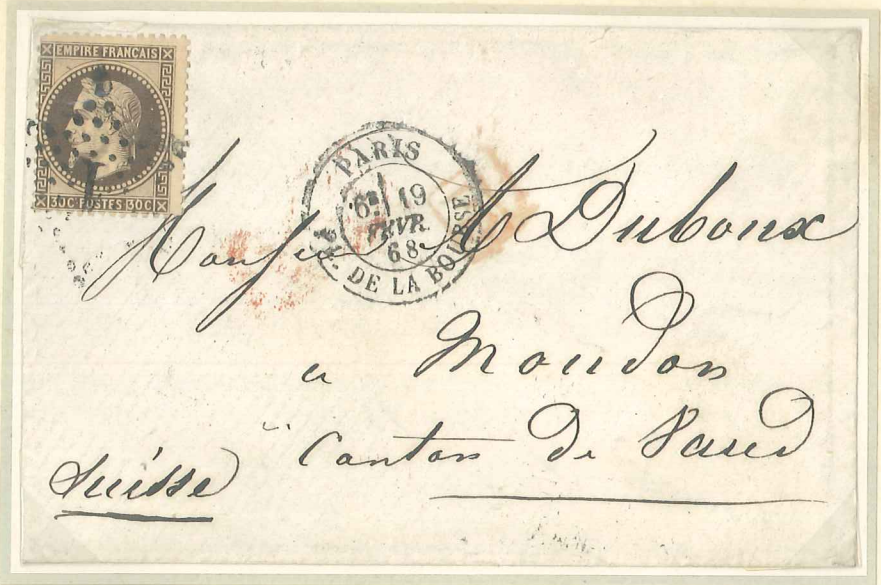 EMPIRE FRANCAIS
30C POSTES 30C
1
PARIS
6E 19
FEVR.
68
DE LA BOURSE
Duboux
a Moudon
Canton de Vaud
Suisse